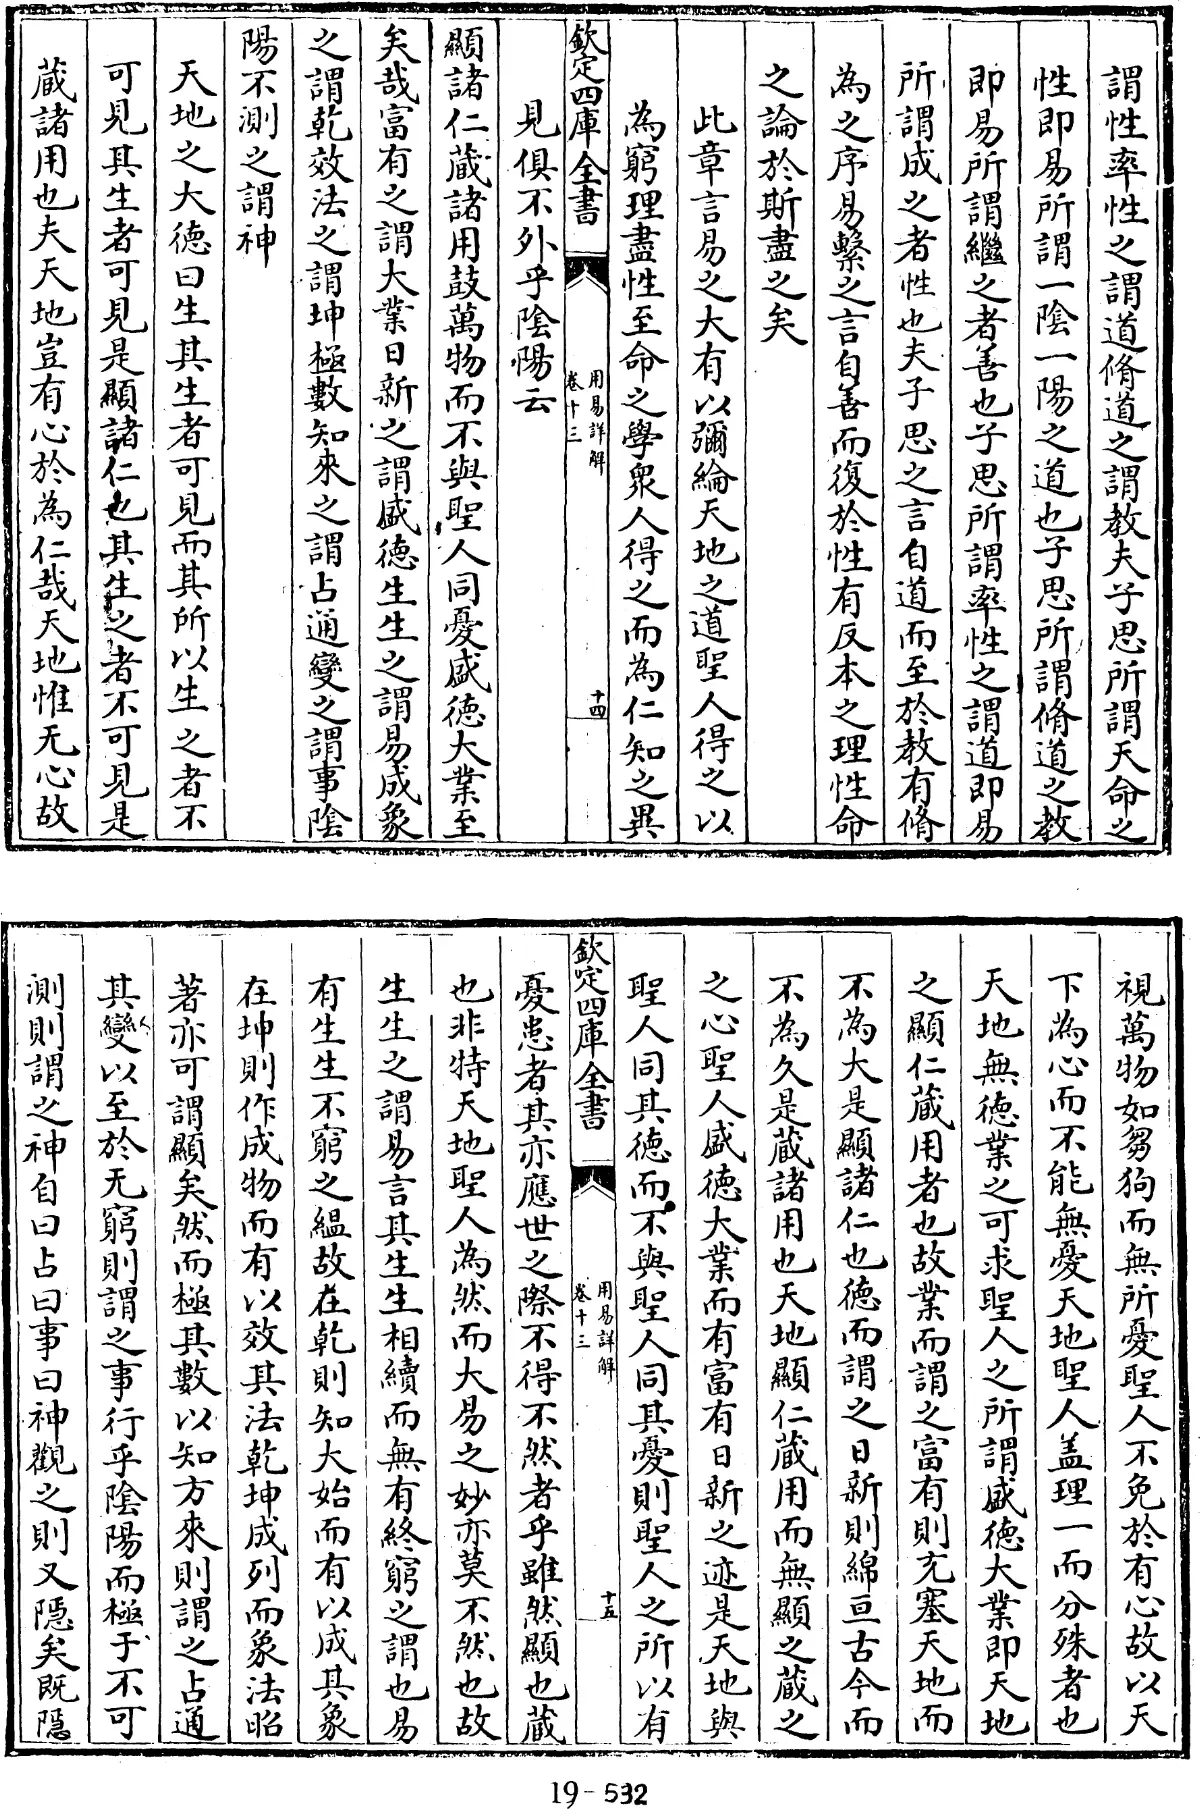 謂性率性之謂道脩道之謂教夫子思所謂天命之
性即易所謂一陰一陽之道也子思所謂脩道之教
即易所謂繼之者善也子思所謂率性之謂道即易
所謂成之者性也夫子思之言自道而至於教有脩
為之序易繫之言自善而復於性有反本之理性命
之論於斯盡之矣
此章言易之大有以彌綸天地之道聖人得之以
為窮理盡性至命之學衆人得之而為仁知之異
欽定四庫全書
用易詳解
卷十三
十四
見俱不外乎陰陽云
顯諸仁藏諸用鼓萬物而不與聖人同憂盛徳大業至
矣哉富有之謂大業日新之謂盛徳生生之謂易成象
之謂乾效法之謂坤極數知來之謂占通變之謂事陰
陽不測之謂神
天地之大徳曰生其生者可見而其所以生之者不
可見其生者可見是顯諸仁也其生之者不可見是
藏諸用也夫天地豈有心於為仁哉天地惟无心故
視萬物如芻狗而無所憂聖人不免於有心故以天
下為心而不能無憂天地聖人盖理一而分殊者也
天地無徳業之可求聖人之所謂盛徳大業即天地
之顯仁藏用者也故業而謂之富有則充塞天地而
不為大是顯諸仁也徳而謂之日新則綿亘古今而
不為久是藏諸用也天地顯仁藏用而無顯之藏之
之心聖人盛徳大業而有富有日新之迹是天地與
聖人同其徳而不與聖人同其憂則聖人之所以有
欽定四庫全書
用易詳解
卷十三
十五
憂患者其亦應世之際不得不然者乎雖然顯也藏
也非特天地聖人為然而大易之妙亦莫不然也故
生生之謂易言其生生相續而無有終窮之謂也易
有生生不窮之緼故在乾則知大始而有以成其象
在坤則作成物而有以效其法乾坤成列而象法昭
著亦可謂顯矣然而極其數以知方來則謂之占通
其變以至於无窮則謂之事行乎陰陽而極于不可
測則謂之神自曰占曰事曰神觀之則又隠矣既隠
19-532